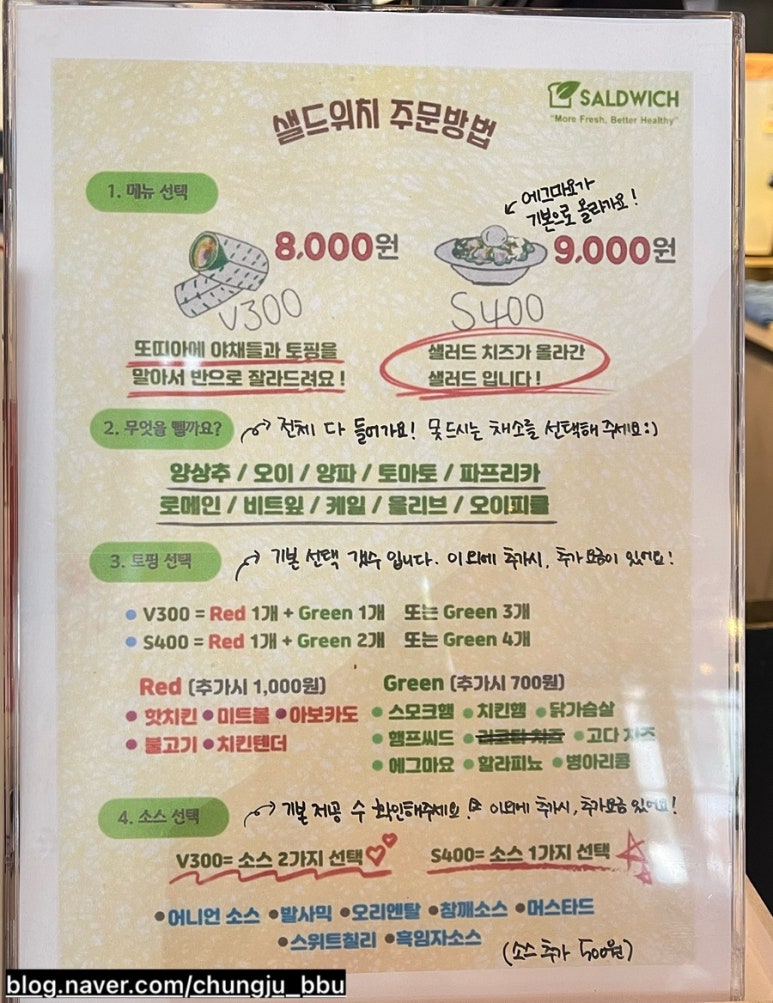 SALDWICH
"More Fresh, Better Healthy"
샐드위치 주문방법
1. 메뉴 선택
↙ 에그마요가
기본으로 올라가요!
8,000원
9,000원
V300
S400
또띠아에 야채들과 토핑을
말아서 반으로 잘라드려요!
샐러드 치즈가 올라간
샐러드 입니다!
2. 무엇을 뺄까요?
전체 다 들어가요! 못드시는 채소를 선택해주세요:)
양상추 / 오이 / 양파 / 토마토 / 파프리카
로메인 / 비트잎 / 케일 / 올리브 / 오이피클
3. 토핑 선택
기본 선택 갯수 입니다. 이외에 추가시, 추가요금이 있어요!
• V300 = Red 1개 + Green 1개 또는 Green 3개
• S400 = Red 1개 + Green 2개 또는 Green 4개
Red (추가시 1,000원)
• 핫치킨 • 미트볼 • 아보카도
• 불고기 • 치킨텐더
Green (추가시 700원)
• 스모크햄 • 치킨햄 • 닭가슴살
• 햄프씨드 • 리코타 치즈 • 고다 치즈
• 에그마요 • 할라피뇨 • 병아리콩
4. 소스 선택
기본 제공 수 확인해주세요! 이외에 추가시, 추가요금 있어요!
V300= 소스 2가지 선택
S400= 소스 1가지 선택
• 어니언 소스 • 발사믹 • 오리엔탈 • 참깨소스 • 머스타드
• 스위트칠리 • 흑임자소스
(소스 추가 500원)
blog.naver.com/chungju_bbu